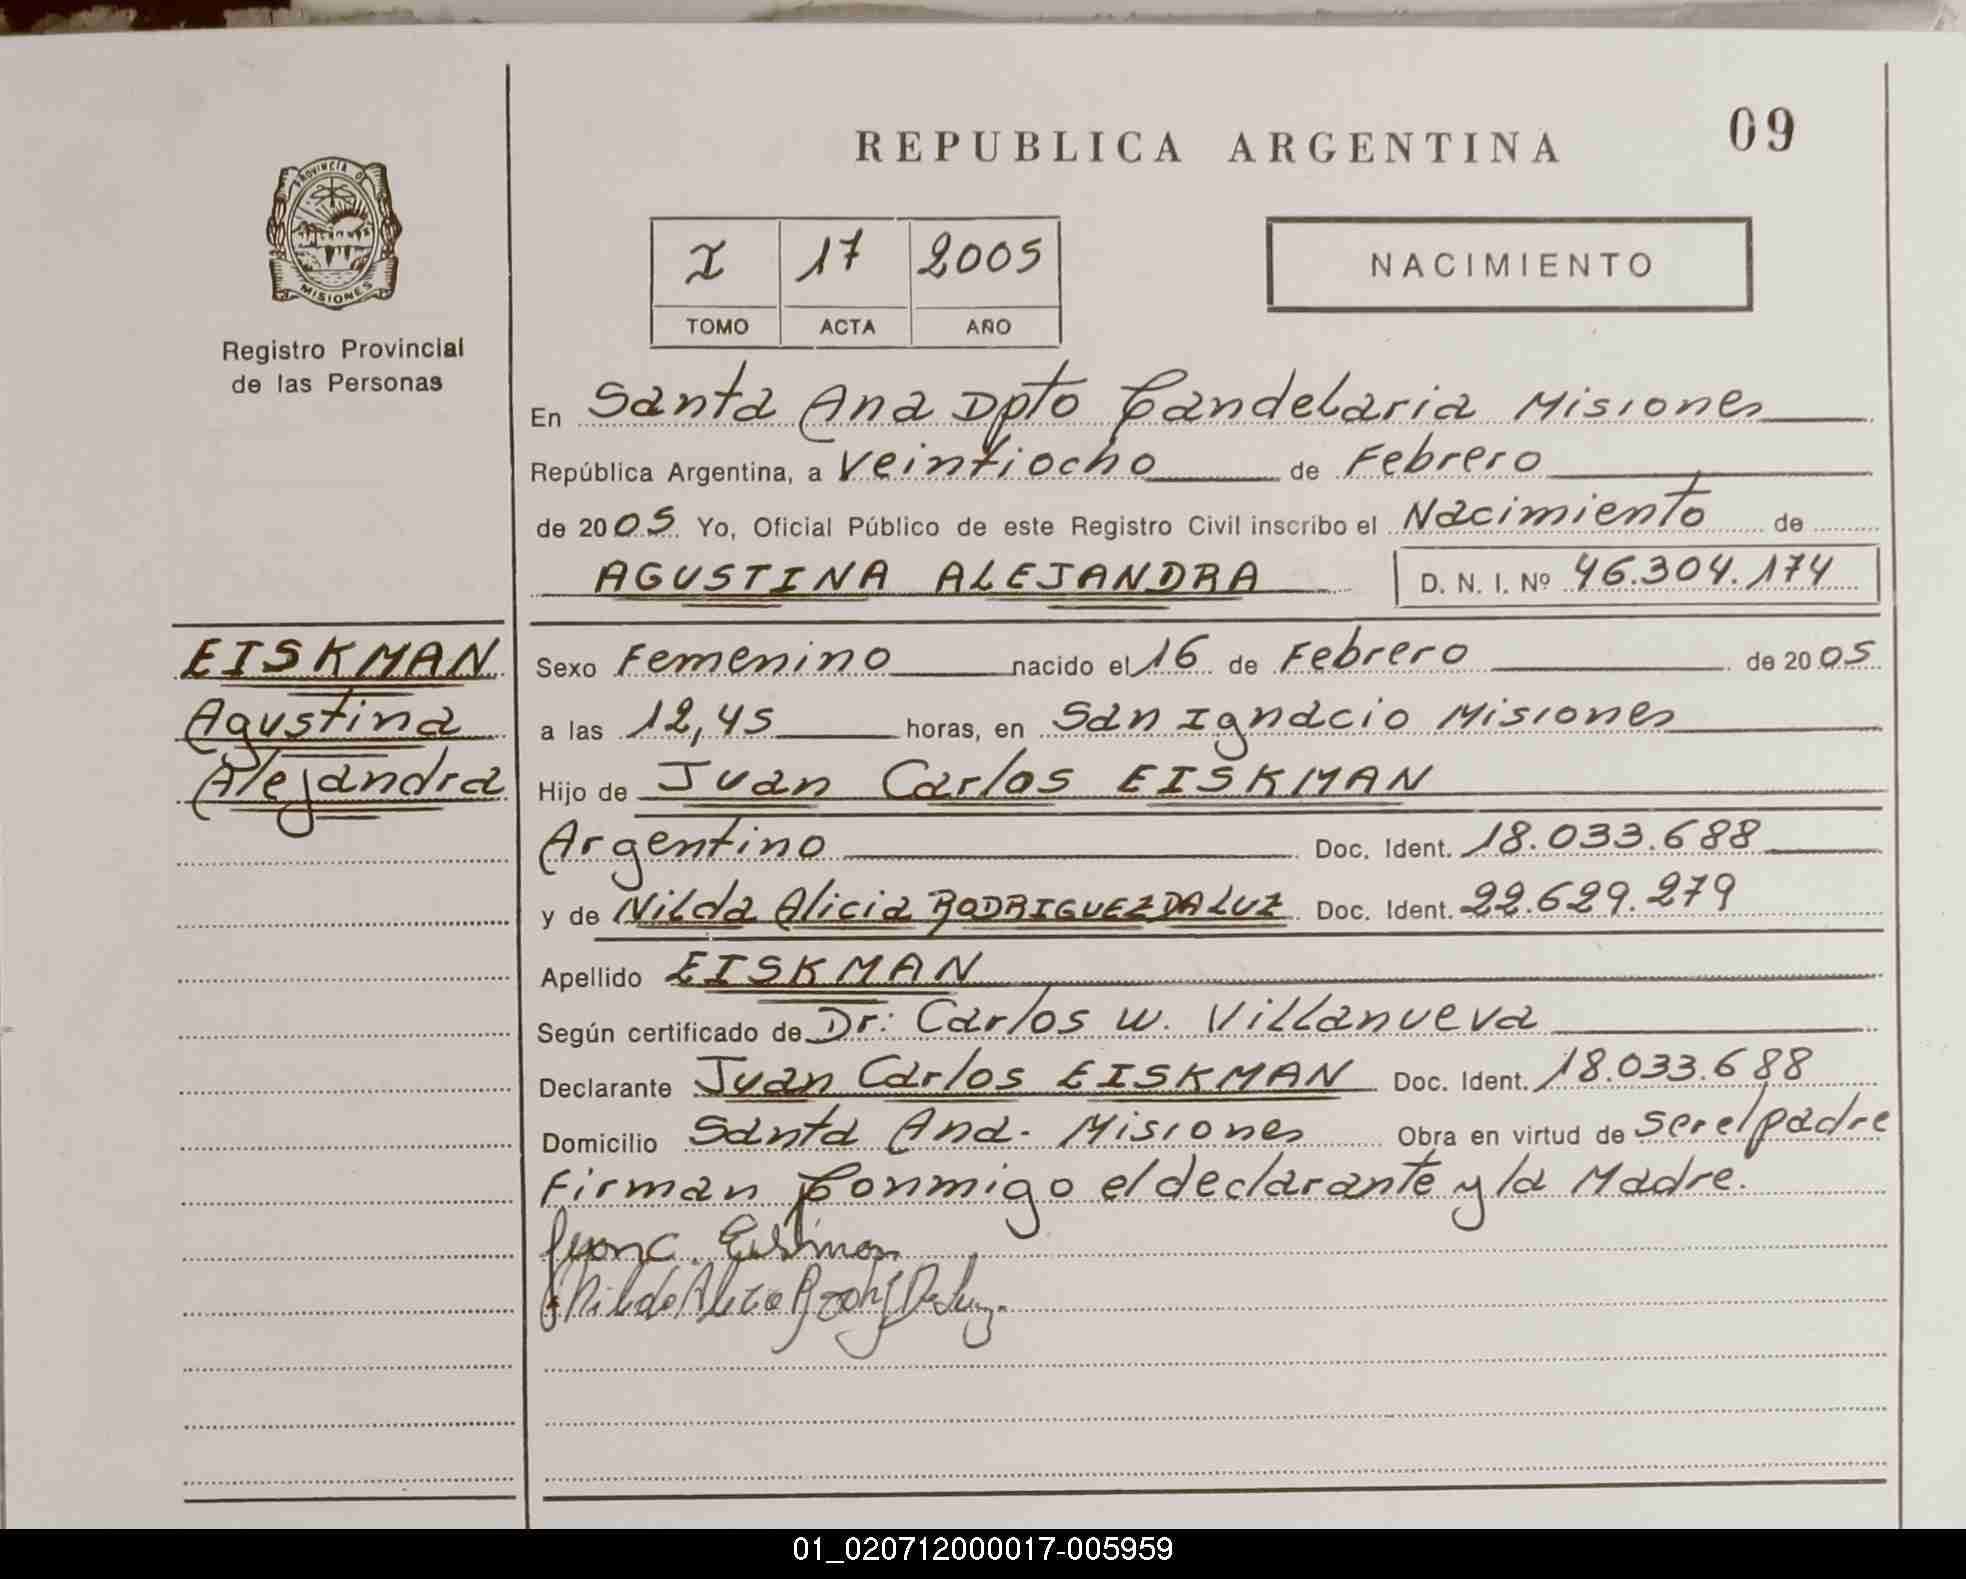 REPUBLICA ARGENTINA
09
PROVINCIA D
MISIONES
Registro Provincial
de las Personas
I 17 2005
TOMO ACTA AÑO
NACIMIENTO
En Santa Ana Dpto Candelaria Misiones
República Argentina, a Veintiocho de Febrero
de 2005 Yo, Oficial Público de este Registro Civil inscribo el Nacimiento de
AGUSTINA ALEJANDRA D. N. I. Nº 46.304.174
EISKMAN
Agustina
Alejandra
Sexo Femenino nacido el 16 de Febrero de 2005
a las 12,45 horas, en San Ignacio Misiones
Hijo de Juan Carlos EISKMAN
Argentino Doc. Ident. 18.033.688
y de Nilda Alicia RODRIGUEZ DA LUZ Doc. Ident. 22.629.279
Apellido EISKMAN
Según certificado de Dr: Carlos W. Villanueva
Declarante Juan Carlos EISKMAN Doc. Ident. 18.033.688
Domicilio Santa Ana - Misiones Obra en virtud de ser el padre
Firman Conmigo el declarante y la Madre.
Juan C. Eiskman
Nilda Alicia
01_020712000017-005959